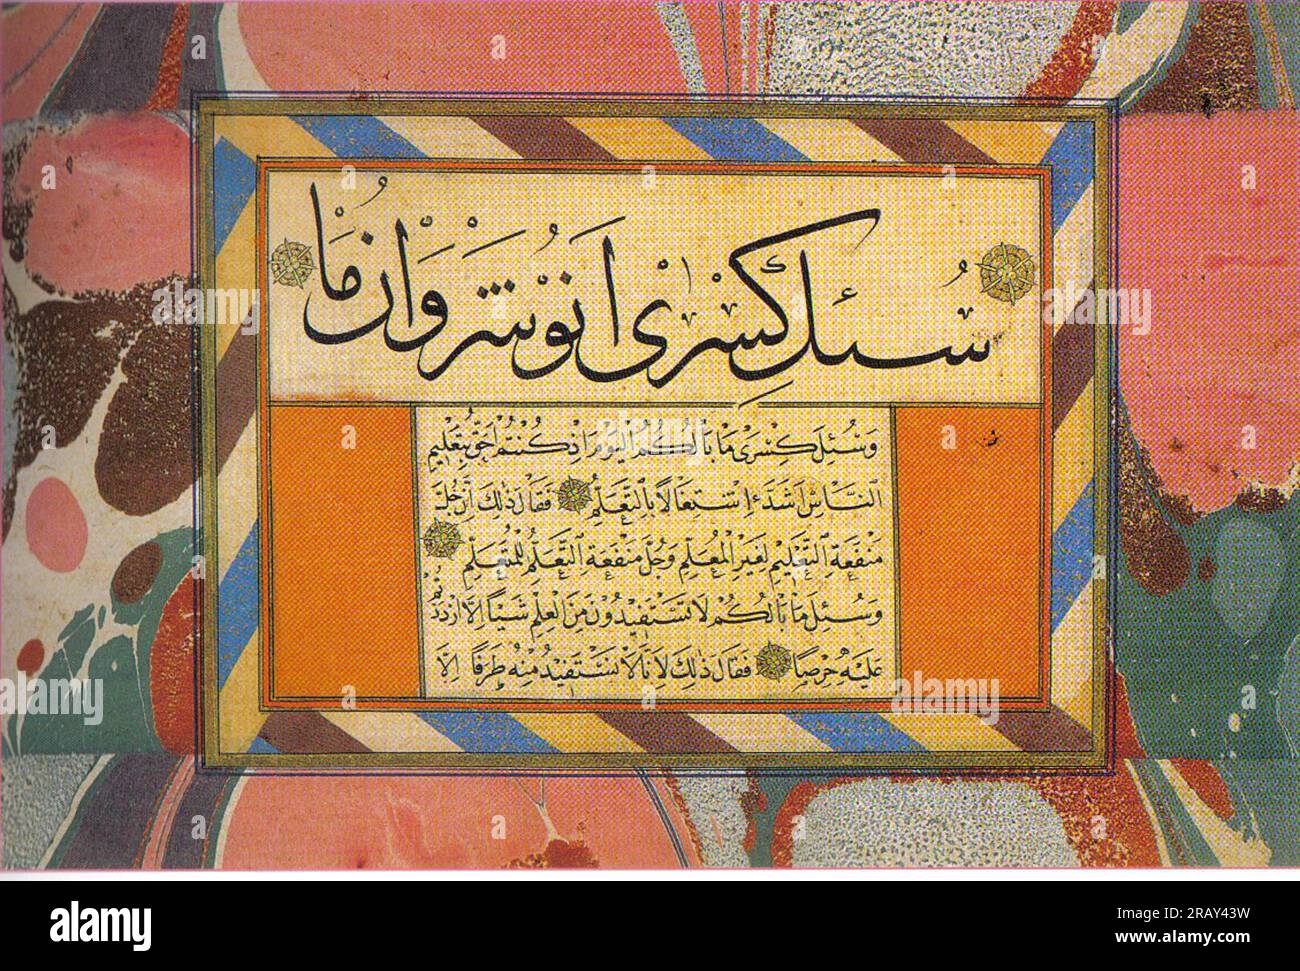 سُئِلَ كِسْرَى اَنُوشَرْوَانْ مَا
وَسُئِلَ كِسْرَى مَا بَالُكُمُ الْيَوْمَ اِذْ كُنْتُمْ اَحَقَّ بِتَعْلِيمِ
النَّاسِ اَشَدَّ اِشْتِغَالًا بِالتَّعَلُّمِ فَقَالَ ذٰلِكَ لِاَنَّ جُلَّ
مَنْفَعَةِ التَّعْلِيمِ لِغَيْرِ الْمُعَلِّمِ وَجُلَّ مَنْفَعَةِ التَّعَلُّمِ لِلْمُتَعَلِّمِ
وَسُئِلَ مَا بَالُكُمْ لَا تَسْتَفِيدُونَ مِنَ الْعِلْمِ شَيْئًا اِلَّا ازْدَدْتُمْ
عَلَيْهِ حِرْصًا فَقَالَ ذٰلِكَ لِاَنَّا لَا نَسْتَفِيدُ مِنْهُ طَرَفًا اِلَّا
alamy
Image ID: 2RAY43W
www.alamy.com